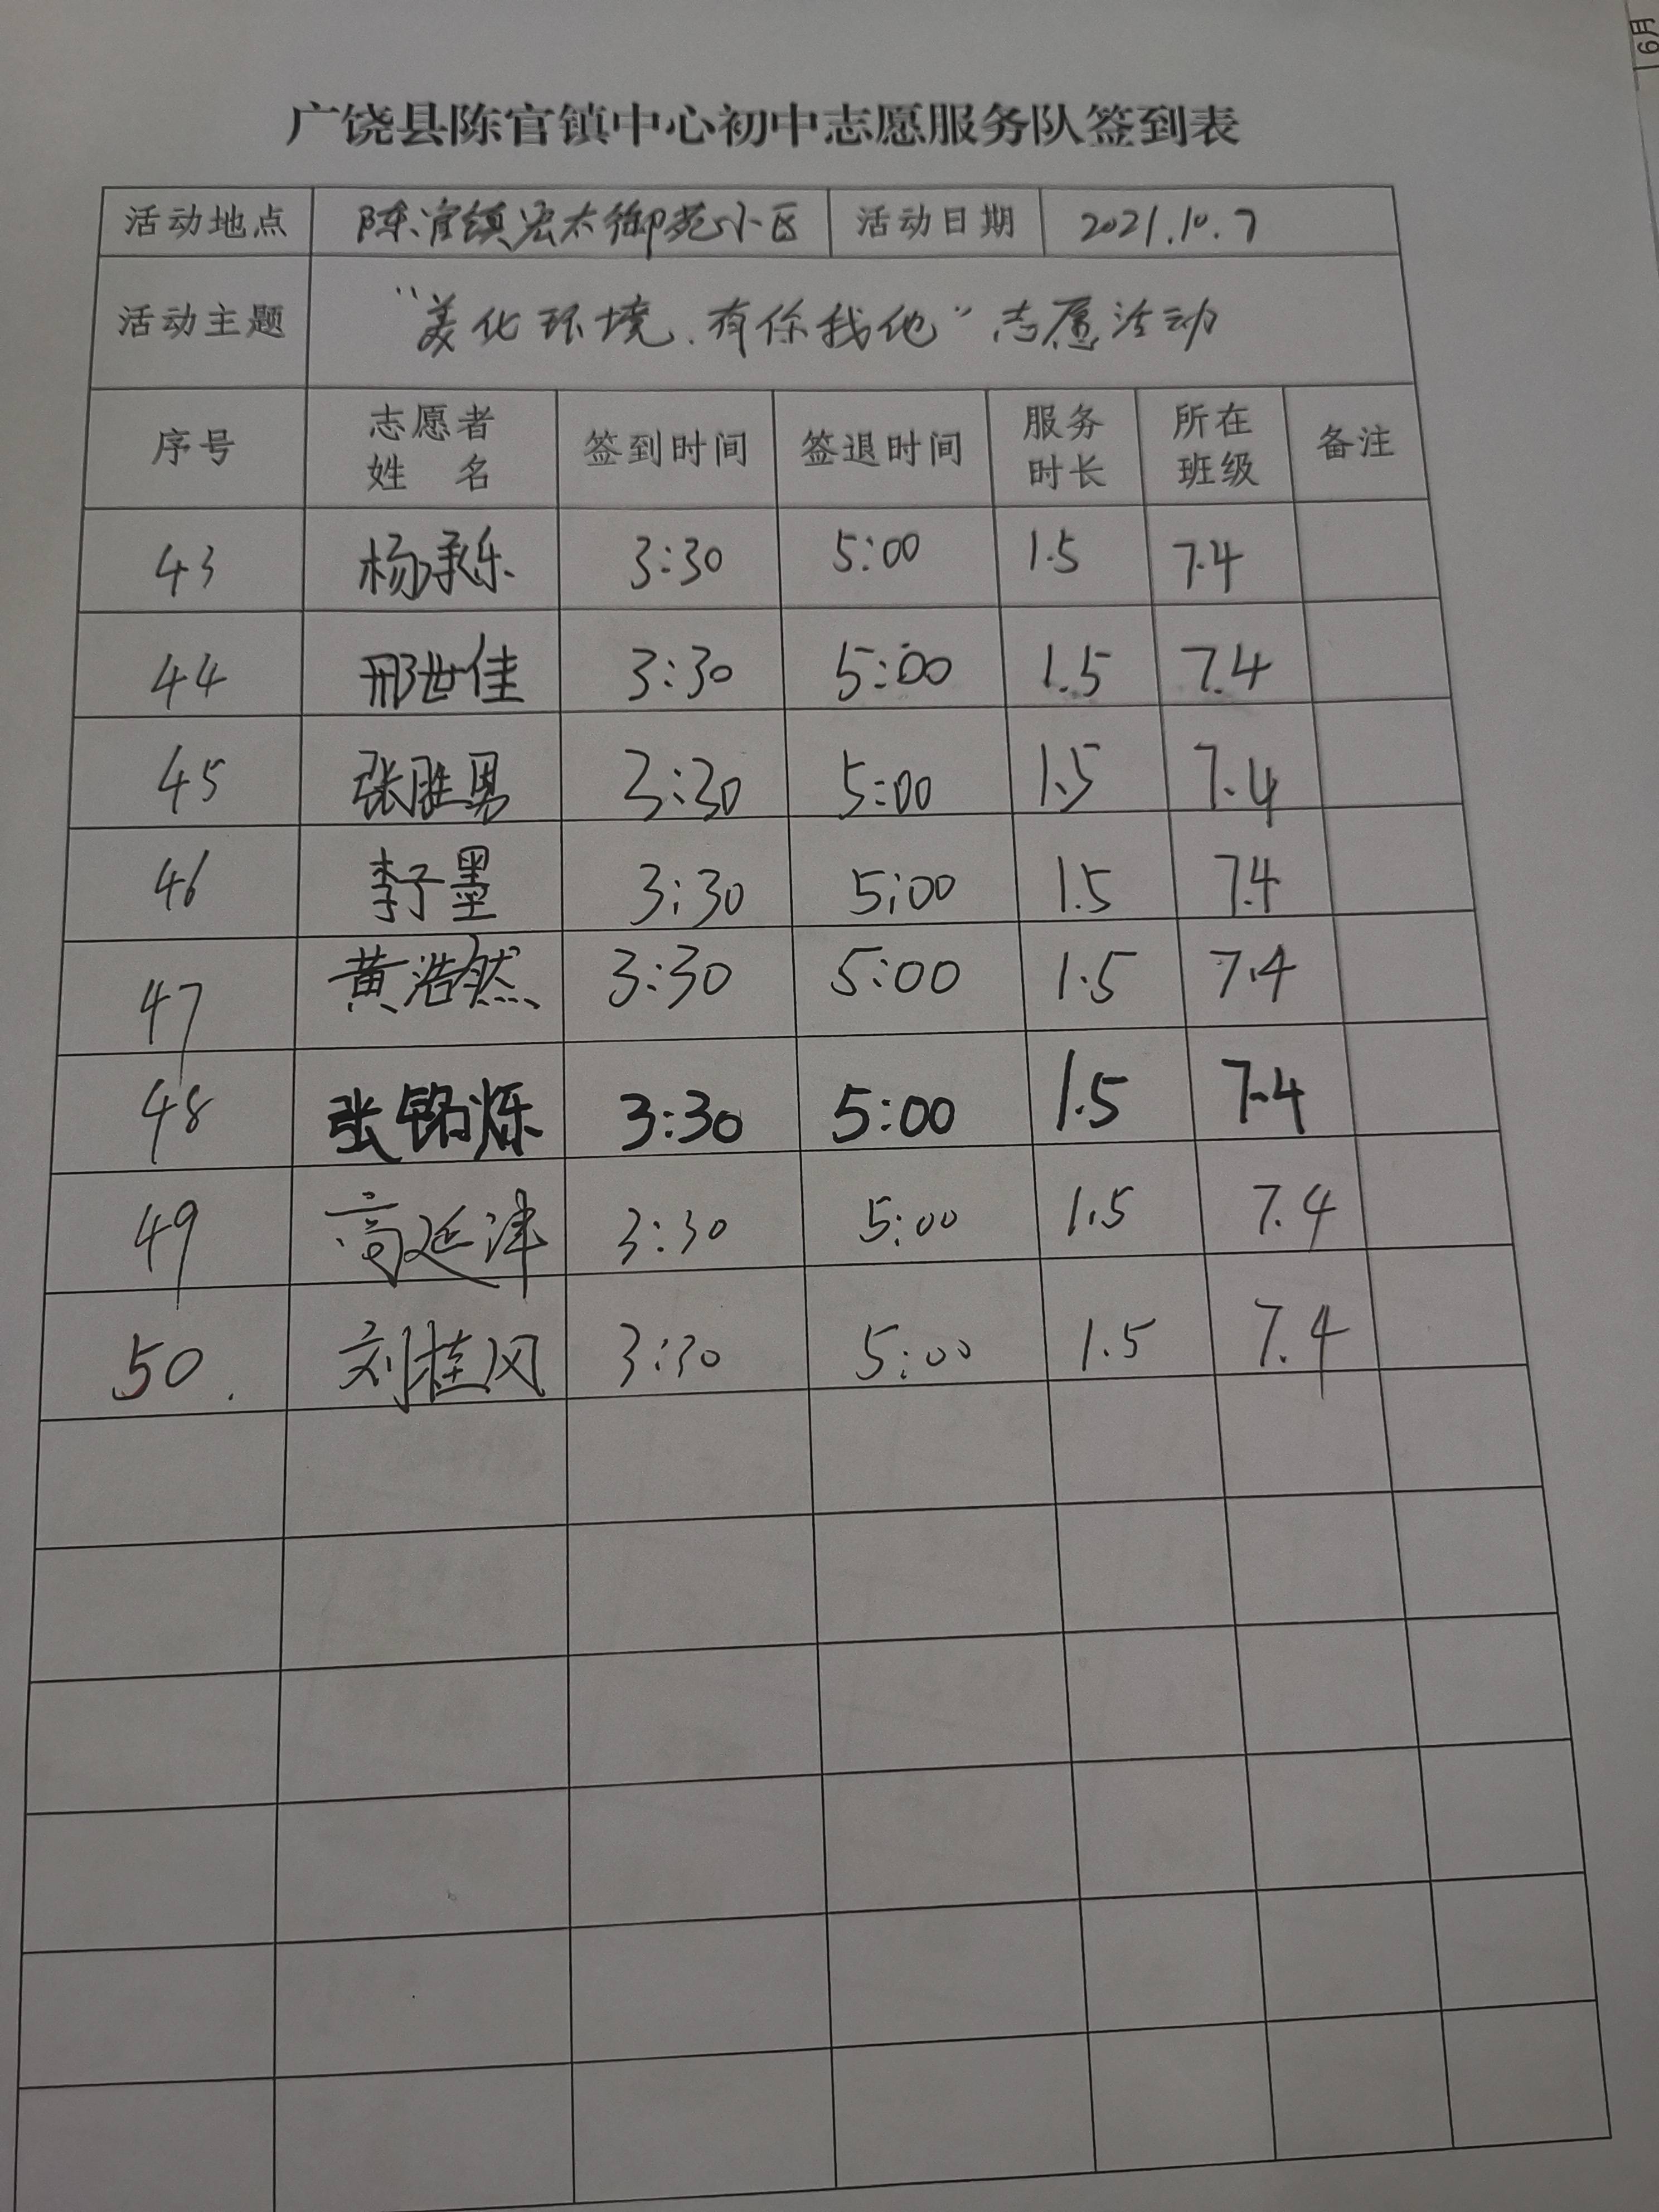 广饶县陈官镇中心初中志愿服务队签到表
活动地点 陈官镇宏太御苑小区 活动日期 2021.10.7
活动主题 “美化环境、有你我他”志愿活动
序号 志愿者姓名 签到时间 签退时间 服务时长 所在班级 备注
43 杨承乐 3:30 5:00 1.5 7.4
44 邢世佳 3:30 5:00 1.5 7.4
45 张胜男 3:30 5:00 1.5 7.4
46 李子墨 3:30 5:00 1.5 7.4
47 黄浩然 3:30 5:00 1.5 7.4
48 张铭烁 3:30 5:00 1.5 7.4
49 高延津 3:30 5:00 1.5 7.4
50. 刘桂冈 3:30 5:00 1.5 7.4
6月